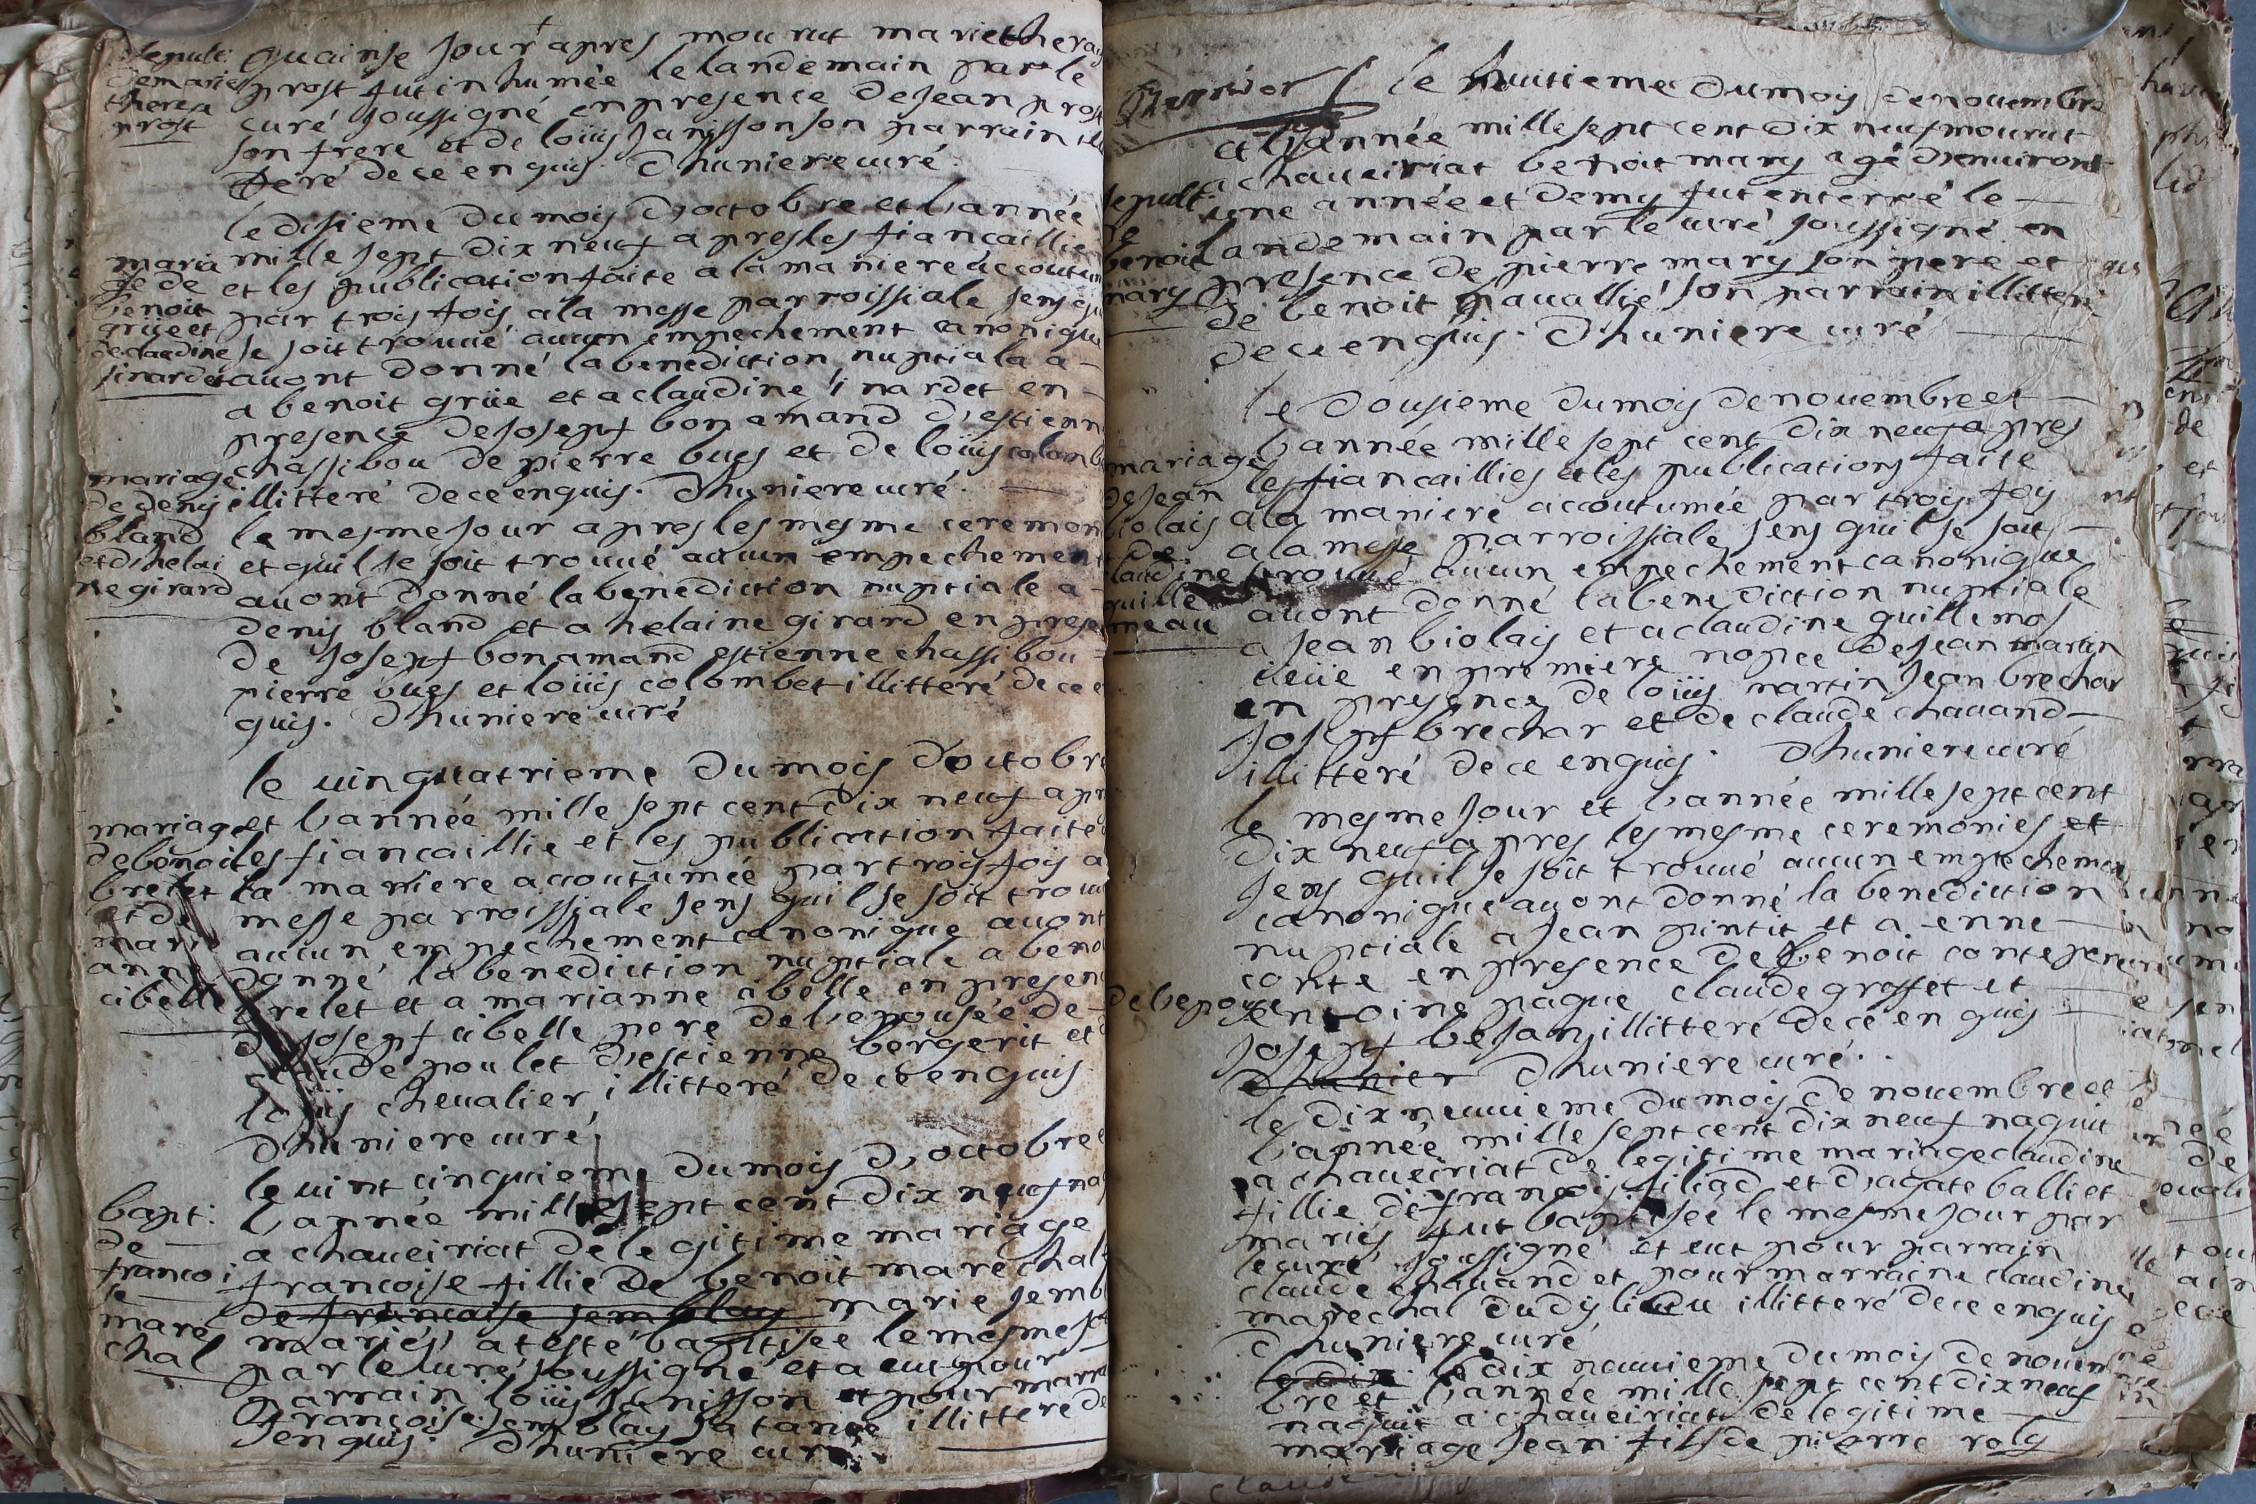 sepult:
de marie
theresa
prost
quainse jour apres mourut marie theresa
prost fut inhumée le landemain par le
curé soussigné en presence de Jean prost
son frere et de loüis Janisson son parrain
de ce enquis. Dhuniere curé.
maria
ge de
benoit
grüe et
de claudine
sinardet
le disieme du mois d'octobre et l'année
mille sept dix neuf apres les fiancaillie
et les publication faite a la maniere accoutum
par trois fois a la messe parroissiale sens qu
se soit trouué aucun empechement canonique
auont donné la benediction nuptiala a
a benoit grüe et a claudine sinardet en
presence de Josept bonamand d'estienne
chassibou de pierre bues et de loüis colomb
illitteré de ce enquis. Dhuniere curé.
mariage
de denis
bland
et d'helai
ne girard
le mesme jour apres les mesme ceremon
et quil se soit trouué aucun empechement
auont donné la benediction nuptiale a
denis bland et a helaine girard en prese
de Josept bonamand estienne chassibou
pierre bues et loüis colombet illitteré de ce en
quis. Dhuniere curé
mariage
de benoit
brelet
et de
marie
anne
cibelle
le uinguatrieme du mois doctobre
et l'année mille sept cent dix neuf apr
les fiancaillie et les publication faite
la maniere accoutumée par trois fois a
messe parroissiale sens quil se soit trouu
aucun empechement canonique auont
donné la benediction nuptiale a beno
brelet et a marianne cibelle en presen
de Josept cibelle pere de l'epousée de
claude poulet d'estienne bergerit et d
loüis cheualier illitteré de ce enquis.
Dhuniere curé
bapt:
de
francoi
se
maré
chal
le uint cinquieme du mois d'octobre e
l'année mille sept cent dix neuf na
a chaueiriat de legitime mariage
francoise fillie de benoit marechal
de francoise semblay marie semb
mariés a esté baptisée le mesme jo
par le curé soussigné et a eut pour
parrain loüis Janisson et pour marra
francoise semblay sa tante illitteré de
enquis. Dhuniere curé
sepult:
de
benoit
mary
le huitieme du mois de nouembre
et l'année mille sept cent dix neuf mourut
a chaueiriat benoit mary agé d'enuiront
une année et demy fut enterré le
landemain par le curé soussigné en
presence de pierre mary son pere et
de benoit gauallié son parrain illitteré
de ce enquis. Dhuniere curé
mariage
de Jean
biolais
et de
claudine
guille
meau
le dousieme du mois de nouembre et
l'année mille sept cent dix neuf apres
les fiancaillies et les publications faite
a la maniere accoutumée par trois fois
a la messe parroissiale sens quil se soit
trouué aucun empechement canonique
auont donné la benediction nuptiale
a Jean biolais et a claudine guillemos
ueüe en premiere nopce de Jean martin
en presence de loüis martin Jean brechar
Josept brechar et de claude chauand
illitteré de ce enquis. Dhuniere curé
le mesme jour et l'année mille sept cent
dix neuf apres les mesme ceremonies et
sens quil se soit trouué aucun empechement
canonique auont donné la benediction
nuptiale a Jean pintit et a enne
conte en presence de benoit conte pere
de lepouse entoine paque claude grosset et
Josept besan illitteré de ce enquis
dhunier Dhuniere curé.
le dix neuuieme du mois de nouembre et
l'année mille sept cent dix neuf naquit
a chaueiriat de legitime mariage claudine
fillie de francois filiad et d'agate balliet
mariés fut baptisée le mesme jour par
le curé soussigné et eut pour parrain
claude chauand et pour marraine claudine
marechal dudy lieu illitteré de ce enquis
Dhuniere curé
le dix le dix neuuieme du mois de nouem
bre et l'année mille sept cent dix neuf
naquit a chaueiriat de legitime
mariage Jean fils de pierre roly